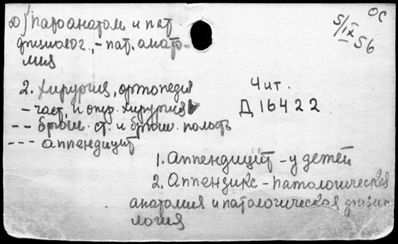 патоанатом и пат.
физиолог. - пат. анато-
мия
ОС
5/IX 56
2. Хирургия, ортопедия
- част. и опер. хирургия
-- брюш. ст. и брюш. полость
--- аппендицит
Чит.
Д16422
1. Аппендицит - у детей
2. Аппендикс - патологическая
анатомия и патологическая физио-
логия